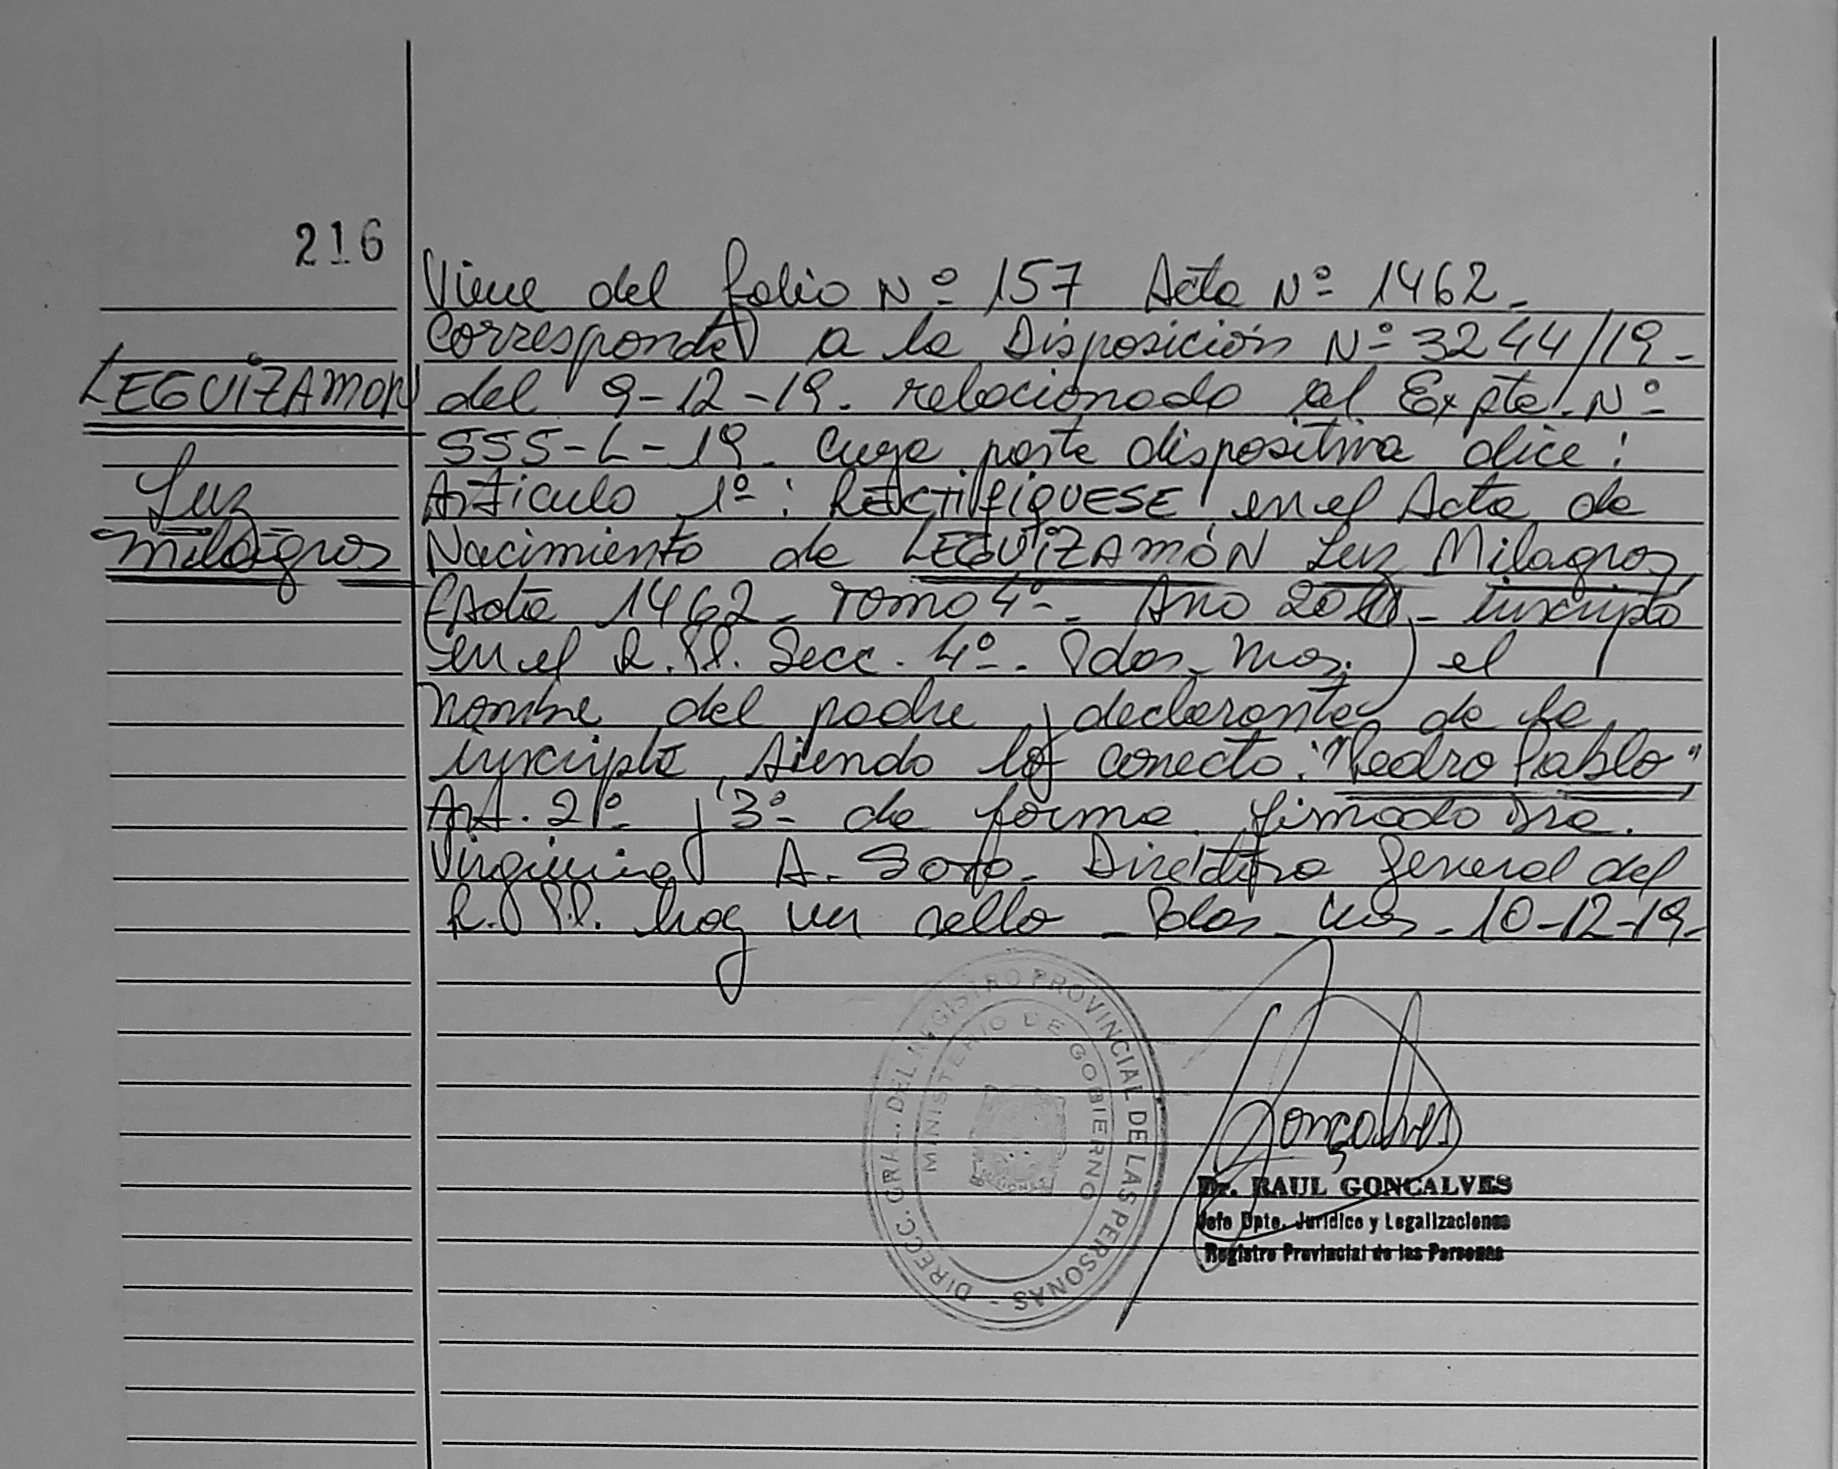 216
LEGUIZAMON
Luz
milagros
Viene del folio Nº 157 Acta Nº 1462.
Corresponde a la Disposición Nº 3244/19-
del 9-12-19. relacionado al Expte. Nº
555-L-19. Cuya parte dispositiva dice:
Articulo 1º: RECTIFIQUESE en el Acta de
Nacimiento de LEGUIZAMÓN Luz Milagros,
(Acta 1462- Tomo 4º- Año 20 - inscripta
en el R.P.P. Secc. 4º. Pdas. Mnes.) el
nombre del padre y declarante de la
inscripta, siendo lo correcto: "Pedro Pablo",
Art. 2º y 3º de forma. firmado Dra.
Virginia A. Soto. Directora General del
R.P.P. hay un sello - Pdas. Mnes. 10-12-19-
DIRECC. GRAL. DEL REGISTRO PROVINCIAL DE LAS PERSONAS -
MINISTERIO DE GOBIERNO
MISIONES
Gonçalves
Dr. RAUL GONCALVES
Jefe Dpto. Jurídico y Legalizaciones
Registro Provincial de las Personas